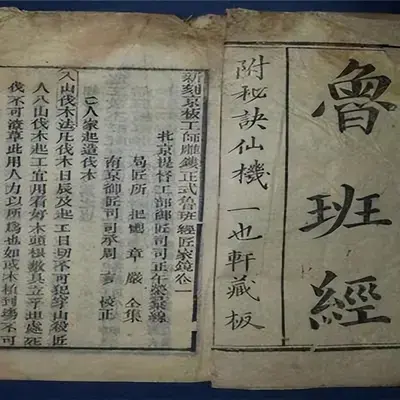 魯班經
附秘訣仙機 一也軒藏板
新刻京板工師雕鏤正式魯班經匠家鏡卷一
北京提督工部御匠司司正午榮彙編
局匠所把總章嚴仝集
南京御匠司司承周言校正
人家起造伐木
入山伐木法凡伐木日辰及起工日切不可犯穿山殺匠
人入山伐木起工宜用看好木頭根數具立平坦處斫
伐不可潦草此用人力以所為也如或木植到塲不可